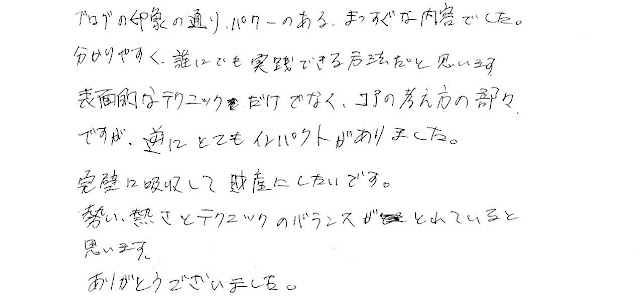 ブログの印象の通り、パワーのある、まっすぐな内容でした。
分かりやすく、誰にでも実践できる方法だと思います
表面的なテクニックだけでなく、コアの考え方の部々、
ですが、逆にとてもインパクトがありました。
完璧に吸収して財産にしたいです。
勢い、熱さとテクニックのバランスがとれていると
思います。
ありがとうございました。